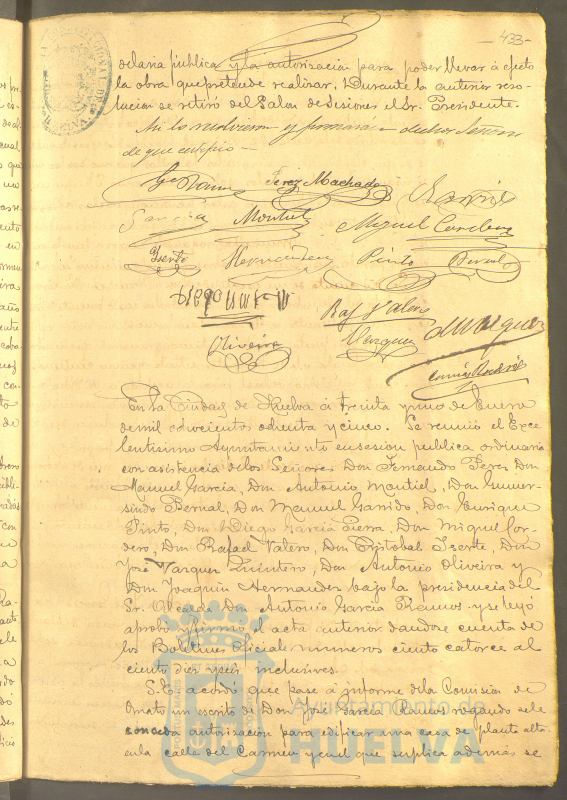 -433-
claria pública y la autorización para poder llevar á efecto
la obra que pretende realizar. Durante la anterior reso-
lucion se retiró del Salon de Sesiones el Sr. Presidente.
Asi lo resolvieron y firmarán dichos Señores
de que certifico—
Perez Machado
Garcia Montiel Miguel Cordero
Yserte Hernandez Pinto Bernal
Raf Valero
Oliveira Vazquez
En la Ciudad de Huelva á treinta y uno de Enero
de mil ochocientos ochenta y cinco. Se reunió el Exce-
lentisimo Ayuntamiento en sesion publica ordinaria
con asistencia de los Señores Don Fernando Perez Don
Manuel Garcia, Don Antonio Montiel, Don Gumer-
sindo Bernal, Don Manuel Garrido, Don Enrique
Pinto, Don Diego Garcia Sierra, Don Miguel Cor-
dero, Don Rafael Valero, Don Cristobal Iserte, Don
José Vazquez Quintero, Don Antonio Oliveira y
Don Joaquin Hernandez bajo la presidencia del
Sr. Alcalde Don Antonio Garcia Ramos y se leyó
aprobó y firmó el acta anterior dandose cuenta de
los Boletines oficiales numeros ciento catorce al
ciento diez y seis inclusives.
S.E. acordó que pase á informe de la Comision de
Ornato un escrito de Don José Garcia Ramos rogando se le
conceda autorizacion para edificar una casa de planta alta
en la calle del Carmen y en el que suplica además se
Ayuntamiento de
HUELVA